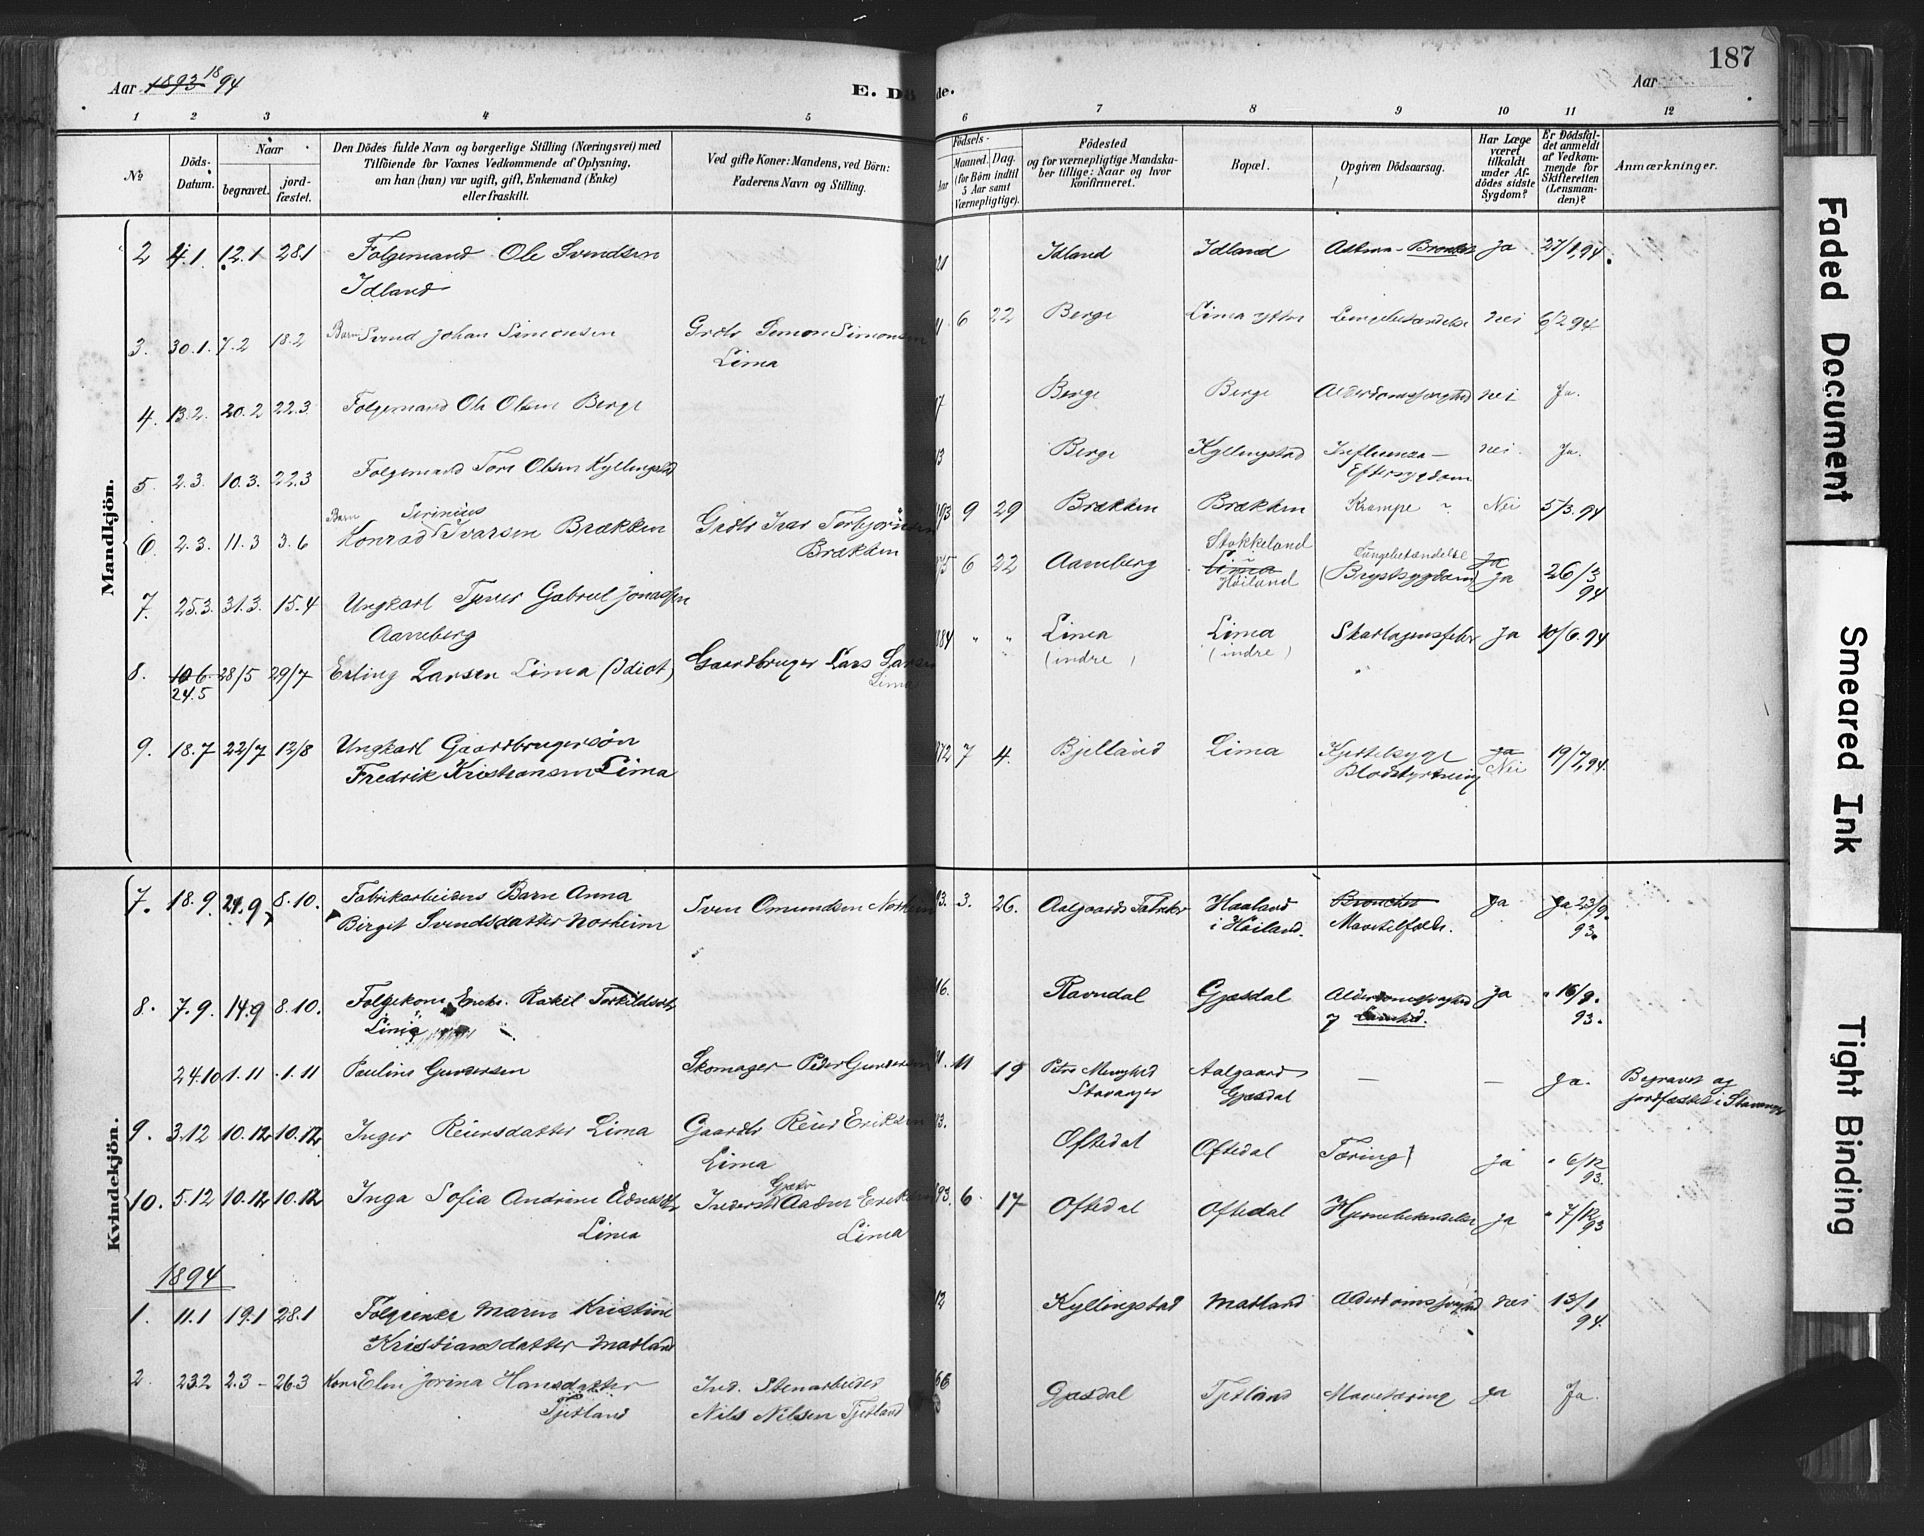 187
Aar 1893 1894
E. Dö de.
Aar
1 2 3 4 5 6 7 8 9 10 11 12
No
Döds-Datum.
Naar
begravet.
jord-fæstet.
Den Dödes fulde Navn og borgerlige Stilling (Næringsvei) med
Tilföiende for Voxnes Vedkommende af Oplysning,
om han (hun) var ugift, gift, Enkemand (Enke)
eller fraskilt.
Ved gifte Koner: Mandens, ved Börn:
Faderens Navn og Stilling.
Födsels-
Aar
Maaned. Dag.
(for Börn indtil
5 Aar samt
Værnepligtige).
Födested
og for værnepligtige Mandska-
ber tillige: Naar og hvor
konfirmeret.
Bopæl.
Opgiven Dödsaarsag.
Har Læge
været
tilkaldt
under Af-
dödes sidste
Sygdom?
Er Dödsfal-
det anmeldt
af Vedkom-
mende for
Skifteretten
(Lensman-
den)?
Anmærkninger.
Mandkjön.
2 4.1 12.1 28.1 Folgemand Ole Svendsen Idland Idland Astma - Bronkit Ja 27/1 94.
Idland
3. 30.1. 7.2 18.2 Barn Svend Johan Simonsen Grdbr Simon Simonsen 6 22 Berge Lima ytre nei 6/2 94
Lima
4. 13.2. 20.2 22.3. Folgemand Ole Olsen Berge Berge Berge Alderdomssvaghed nei Ja.
5. 2.3. 10.3. 22.3 Folgemand Tore Olsen Kyllingstad Berge Kyllingstad Influenza - nei. Ja.
Eftersygdom
Barn Serinius
6. 2.3. 11.3 3.6 Konrad Ivarsen Brækken Grdbr Ivar Torbjörnsen 93 9 29 Brækken Brækken Krampe Nei 5/3.94
Brækken
Stokkeland Lungebetændelse Ja
7. 25.3. 31.3. 15.4 Ungkarl Gabriel Jonassen 75 6 22 Aamberg Lima Höiland (Brystsygdom) Ja 26/3 94
Aamberg
8. 10.6 28/5 29/7 Erling Larsen Lima (Idiot) Gaardbruger Lars Larsen 84 " " Lima Lima Skarlagensfeber Ja 10/6.94
24.5 Lima (indre) (indre)
9. 18.7 22/7 12/8 Ungkarl Gaardbrugersön 72 7 4. Bjelland Lima Kjertelsyge Ja 19/7.94.
Fredrik Kristiansen Lima Blodstyrtning Nei
Kvindekjön.
7. 18.9. 21.9. 8.10. Fabrikarbeiders Barn Anna Sven Omundsen Norheim 93. 3. 26. Aalgaards Fabriker Haaland Bronchit Ja Ja 23/9.
Birgit Svendsdatter Norheim i Höiland. Mavetilfælde. 93.
8. 7.9. 14.9 8.10. Folgekone Enke. Rakel Torkildsdtr 16. Ravndal Gjesdal Alderdomssvaghed Ja " 16/9.
Lima 93.
24.10 1.11 1.11 Pauline Gundersen Skomager Peder Gundersen 11 19 Petri Menighed Aalgaard — — Ja. Begravet og
Stavanger Gjesdal jordfæstet i Stavanger
9. 3.12 10.12 10.12 Inger Reiersdatter Lima Gaardbr Reier Eriksen 93. Oftedal Oftedal Tæring Ja " 6/12
Lima 93.
10. 5.12 10.12 10.12 Inga Sofia Andrine Lima Inderst Aadne Eriksen 93. 6 17 Oftedal Oftedal Hjernebetændelse Ja " 7/12 93
Lima
1894
1. 11.1 19.1 28.1 Folgeenke Maren Kristine 12 Kyllingstad Matland Alderdomssvaghed nei 13/1
Kristiansdatter Matland 94.
2. 23.2 2.3 - 26.3 Kone Elen Jorina Hansdatter Ind. Stenarbeider 66 Gjesdal Tjetland Mavetæring Ja Ja.
Tjetland Nils Nilsen Tjetland
Faded Document
Smeared Ink
Tight Binding